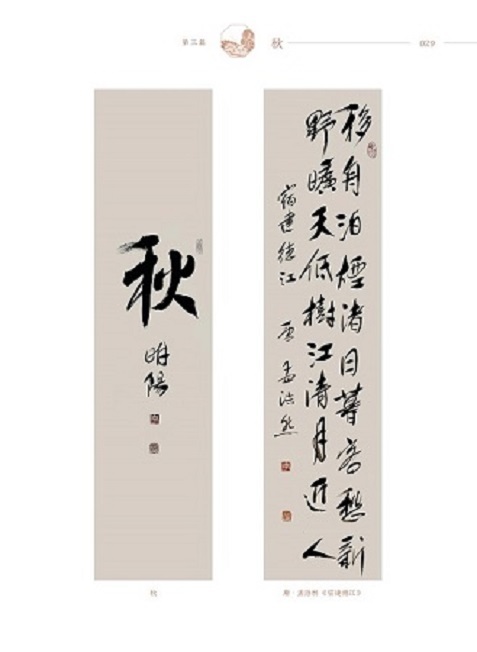 第三篇
秋
029
秋
明陽
移舟泊煙渚日暮客愁新
野曠天低樹江清月近人
宿建德江 唐 孟浩然
秋
唐·孟浩然《宿建德江》